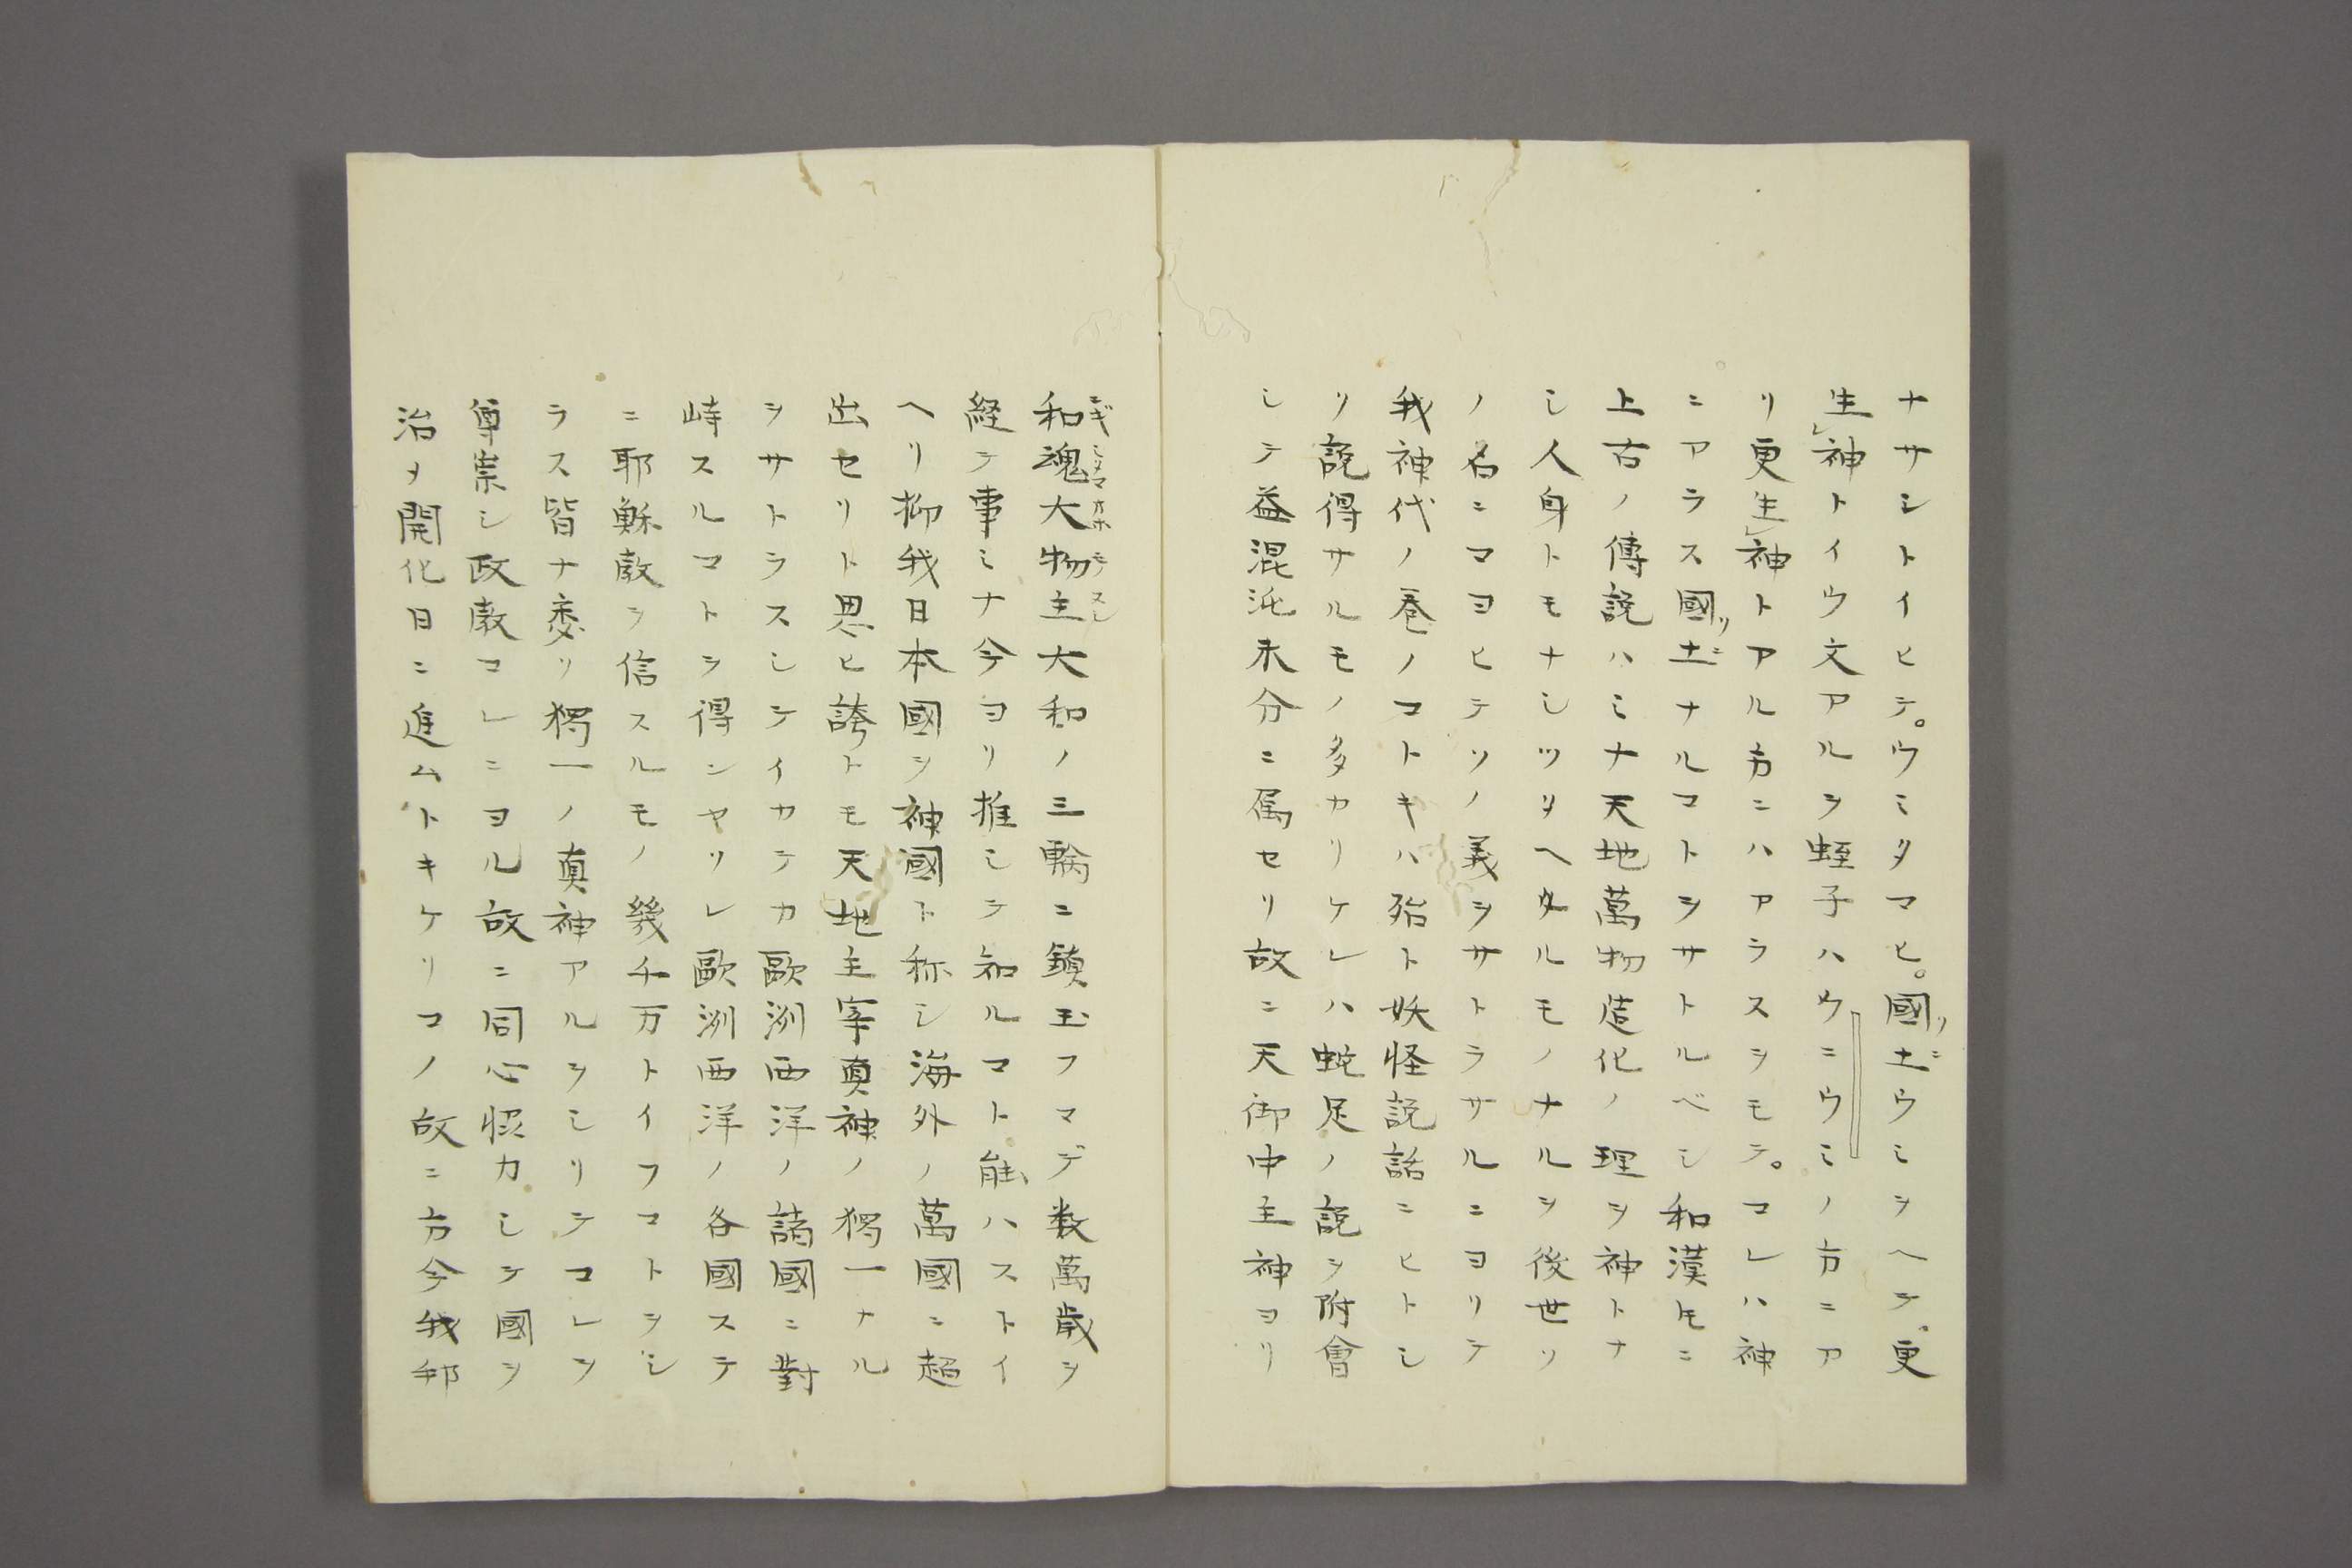 ナサントイヒテ。ウミタマヒ。國土ウミヲヘテ、更
生神トイウ文アルヲ蛭子ハウニウミノ方ニア
リ更生神トアル方ニハアラスヲモテ。コレハ神
ニアラス國土ナルコトヲサトルベシ和漢トモニ
上古ノ傳説ハミナ天地萬物造化ノ理ヲ神トナ
シ人身トモナシツタヘタルモノナルヲ後世ソ
ノ名ニマヨヒテソノ義ヲサトラサルニヨリテ
我神代ノ巻ノコトキハ殆ト妖怪説話ニヒトシ
リ説得サルモノ多カリケレハ蛇足ノ説ヲ附會
シテ益混沌未分ニ属セリ故ニ天御中主神ヨリ
和魂大物主大和ノ三輪ニ鎮玉フマデ数萬歳ヲ
経テ事ミナ今ヨリ推シテ知ルコト能ハストイ
ヘリ抑我日本國ヲ神國ト称シ海外ノ萬國ニ超
出セリト思ヒ誇トモ天地主宰真神ノ獨一ナル
ヲサトラスシテイカテカ歐洲西洋ノ諸國ニ對
峙スルコトヲ得ンヤソレ歐洲西洋ノ各國ステ
ニ耶穌教ヲ信スルモノ幾千万トイフコトヲシ
ラス皆ナ委リ獨一ノ真神アルヲシリテコレヲ
尊崇シ政教コレニヨル故ニ同心恊力シテ國ヲ
治メ開化日ニ進ムトキケリコノ故ニ方今我邦